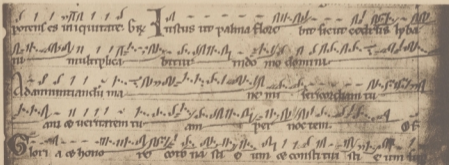 potens es in iquitate. Iustus ut palma flore bit sicut cedrus lyba
ni multiplica bitur in do mo domini
Ad annuntiandu ma ne mi sericordiam tu
am et veritatem tu am per noctem.
Glori a et hono re coro na sti e um et constitui sti e um